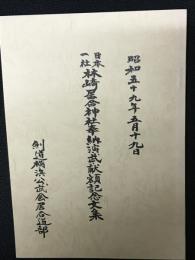 昭和五十九年五月十九日
日本一社
林崎居合神社奉納演武献額記念文集
剣道横浜公武会居合道部